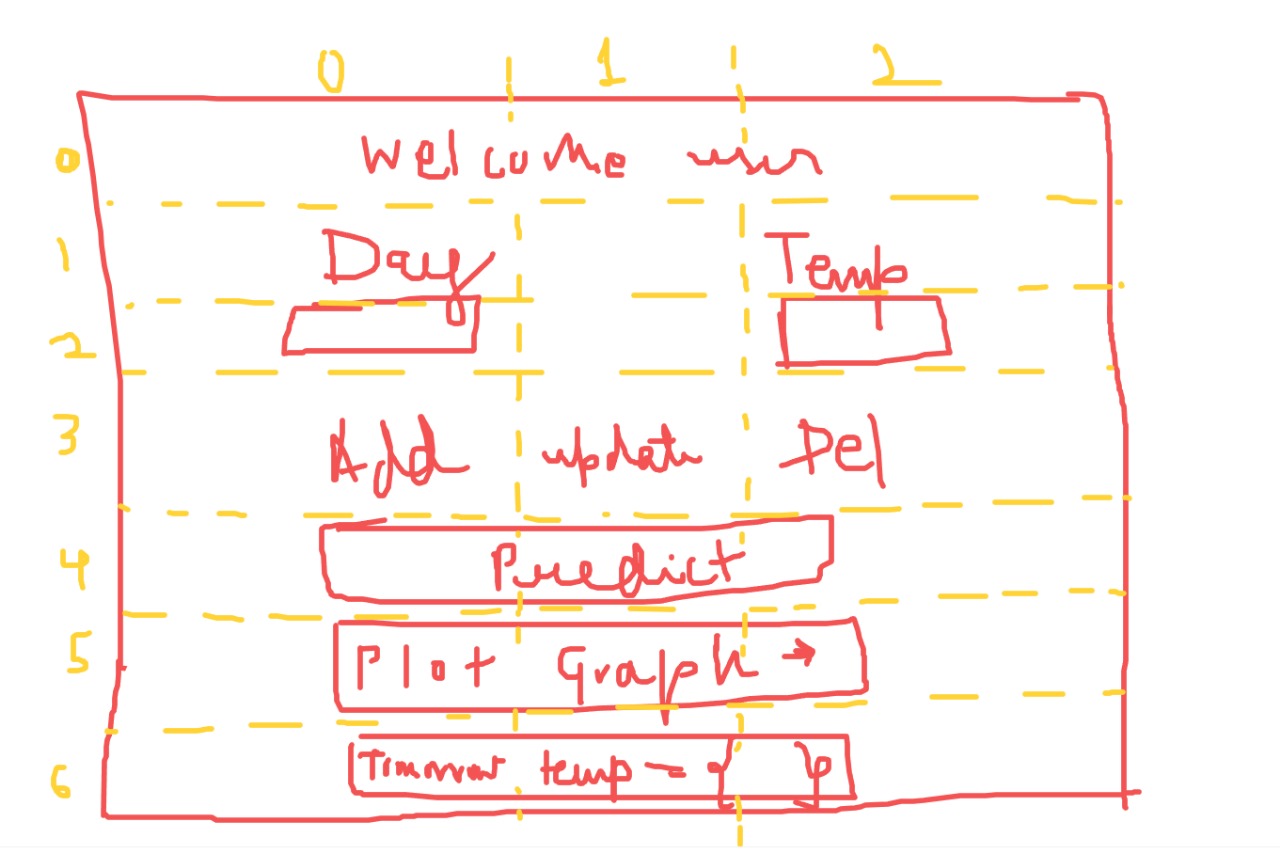 0 1 2
0 Welcome user
1 Day Temp
2
3 Add update Del
4 Predict
5 Plot Graph →
6 temp =